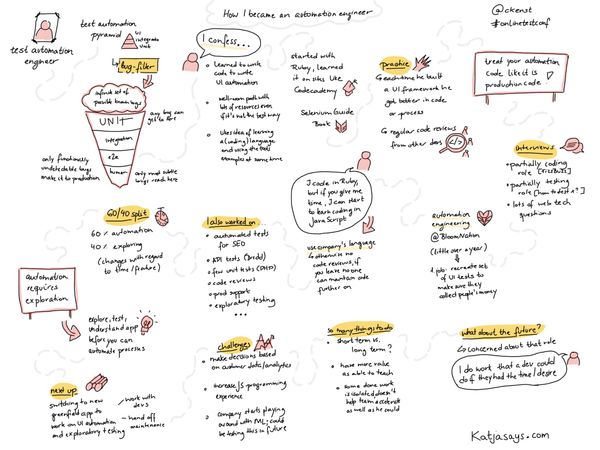 How I became an automation engineer
@ckenst
#onlinetestconf
test automation
engineer
test automation
pyramid
UI
integration
unit
bug-filter
a finite set of
possible known bugs
any bug can
get in here
UNIT
integration
e2e
human
only functionally
undetectable bugs
make it to production
only most subtle
bugs reach here
I confess...
Learned to write
code to write
UI automation
well-worn path with
lots of resources even
if it's not the best way
likes idea of learning
a (coding) language
and using the book
examples at same time
started with
Ruby, learned
it on sites like
Codecademy
Selenium Guide
Book
practice
each time he built
a UI framework he
got better in code
or process
regular code reviews
from other devs
</>
treat your automation
code like it is
production code
interviews
partially coding
role [FizzBuzz]
partially testing
role [how to test x?]
lots of web tech
questions
60/40 split
60% automation
40% exploring
(changes with regard
to time/feature)
I also worked on...
automated tests
for SEO
API tests
few unit tests (PHP)
code reviews
prod support
exploratory testing
...
I code in Ruby,
but if you give me
time, I can start
to learn coding in
JavaScript
use company's language
otherwise no
code reviews, if
you leave no one
can maintain code
further on
automation
engineering
@BloomNation
(little over a year)
1. job: recreate set
of UI tests to
make sure they
called people's money
automation
requires
exploration
explore, test,
understand app
before you can
automate processes
challenges
make decisions based
on customer data/analytics
increase JS programming
experience
company starts playing
around with ML: could
be testing this in future
so many things to do
short term vs.
long term?
have more value
as able to teach
some done work
is isolated doesn't
help team accelerate
as well as he could
what about the future?
concerned about that role
I do work that a dev could
do if they had the time/desire
next up
switching to new
greenfield app to
work on UI automation
and exploratory testing
work with
devs
hand off
maintenance
Katjasays.com